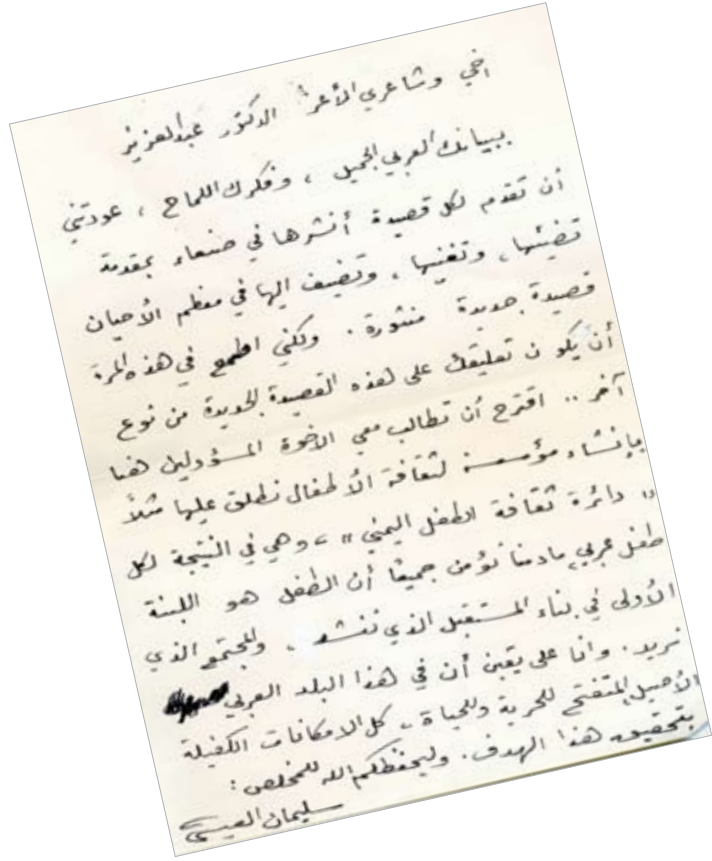 أخي وشاعري الأعز الدكتور عبدالعزيز
ببيانك العربي الجميل ، وفكرك اللماح ، عودتني
أن تقدم لكل قصيدة أنشرها في صنعاء بمقدمة
تضيئها ، وتغنيها ، وتضيف إليها في معظم الأحيان
قصيدة جديدة منثورة . ولكني أطمع في هذه المرة
أن يكون تعليقك على هذه القصيدة الجديدة من نوع
آخر .. اقترح أن تطالب معي الاخوة المسؤولين هنا
بإنشاء مؤسسة لثقافة الأطفال نطلق عليها مثلاً
" دائرة ثقافة الطفل اليمني " ، وهي في النتيجة لكل
طفل عربي مادمنا نؤمن جميعاً أن الطفل هو اللبنة
الأولى في بناء المستقبل الذي ننشد ، والمجتمع الذي
نريد . وأنا على يقين أن في هذا البلد العربي
الأصيل المتفتح للحرية وللحياة ، كل الامكانات الكفيلة
بتحقيق هذا الهدف . وليحفظكم الله للمخلص :
سليمان العيسى